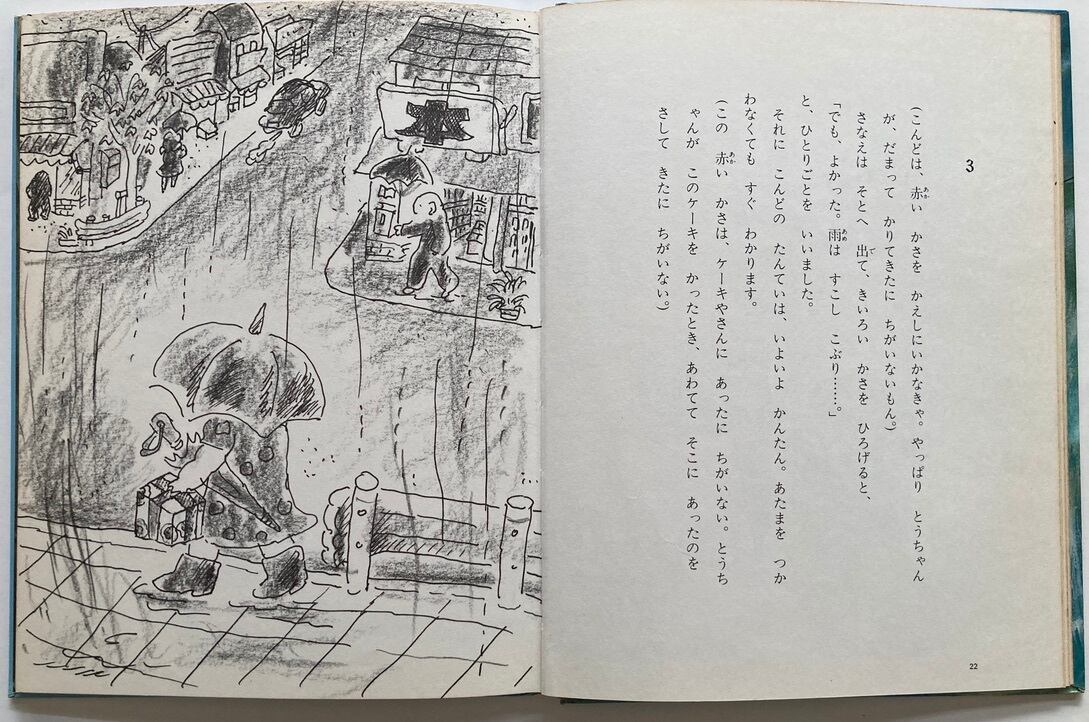 3
(こんどは、赤い かさを かえしにいかなきゃ。やっぱり とうちゃん
が、だまって かりてきたに ちがいないもん。)
さなえは そとへ 出て、きいろい かさを ひろげると、
「でも、よかった。雨は すこし こぶり……。」
と、ひとりごとを いいました。
それに こんどの たんていは、いよいよ かんたん。あたまを つか
わなくても すぐ わかります。
(この 赤い かさは、ケーキやさんに あったに ちがいない。とうち
ゃんが このケーキを かったとき、あわてて そこに あったのを
さして きたに ちがいない。)
22